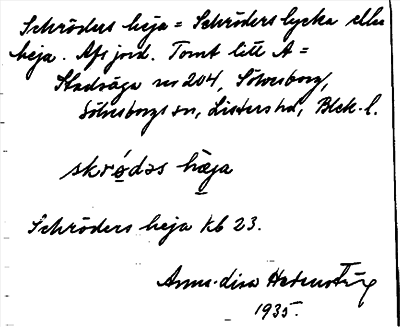 Schröders heja = Schröders lycka eller
heja. Afsjord. Tomt litt A =
Stadsäga nr 204, Sölvesborg,
Sölvesborgs sn, Listers hd, Blek. l.
skrødəs hæja
Schröders heja kb 23.
Anna-Lisa
1935.